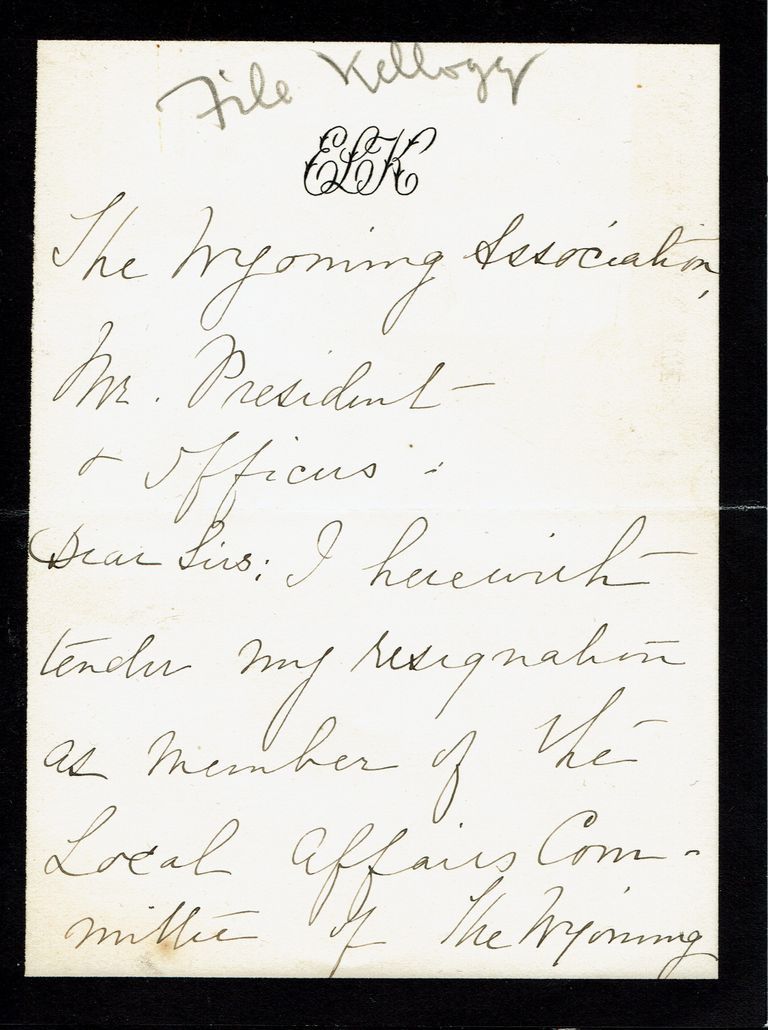 File Kellogg
ELK
The Wyoming Association,
Mr. President -
& Officers :
Dear Sirs: I herewith
tender my resignation
as member of the
Local Affairs Com-
mittee of The Wyoming